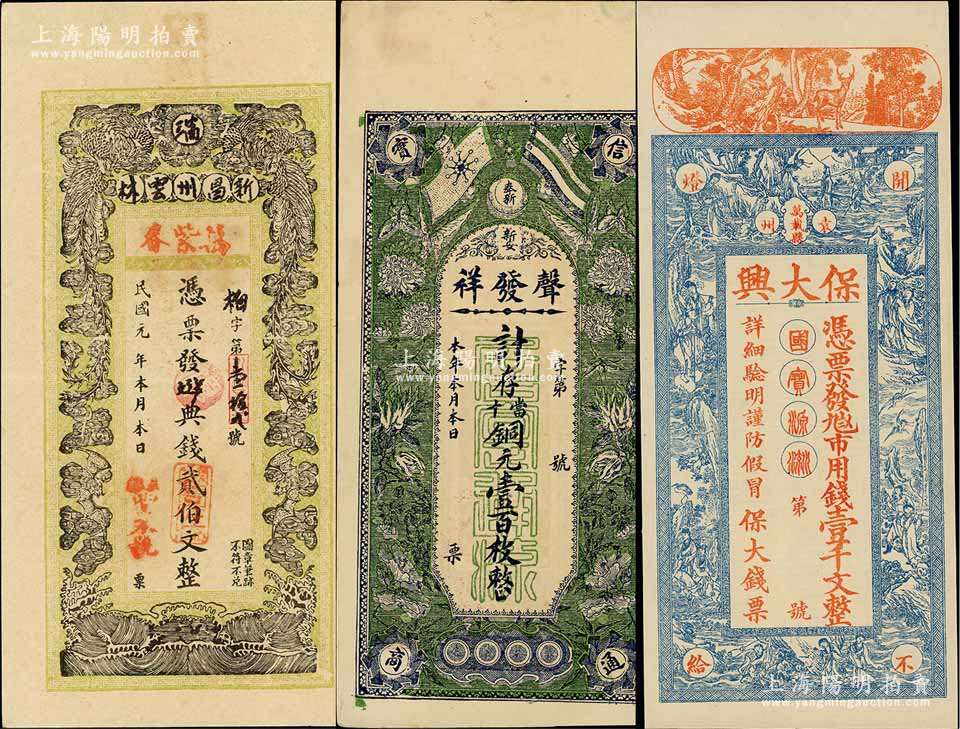 上海陽明拍賣
www.yangmingauction.com
瑞
新昌州雲林
萬紫春
柏字第壹百拾貳號
憑票發典錢貳伯文整
民國元年本月本日
票
圖章花跡
不符不兌
信
寶
奉新
新安
聲發祥
字第 號
計存當十銅元壹百枚整
本年本月本日
票
通
商
上海陽明拍賣
www.yangmingauction.com
開
燈
萬載縣
袁州
保大興
憑票發兌市用錢壹千文整
國寶源淵
第 號
詳細驗明謹防假冒 保大錢票
不
給
上海陽明拍賣
www.yangmingauction.com